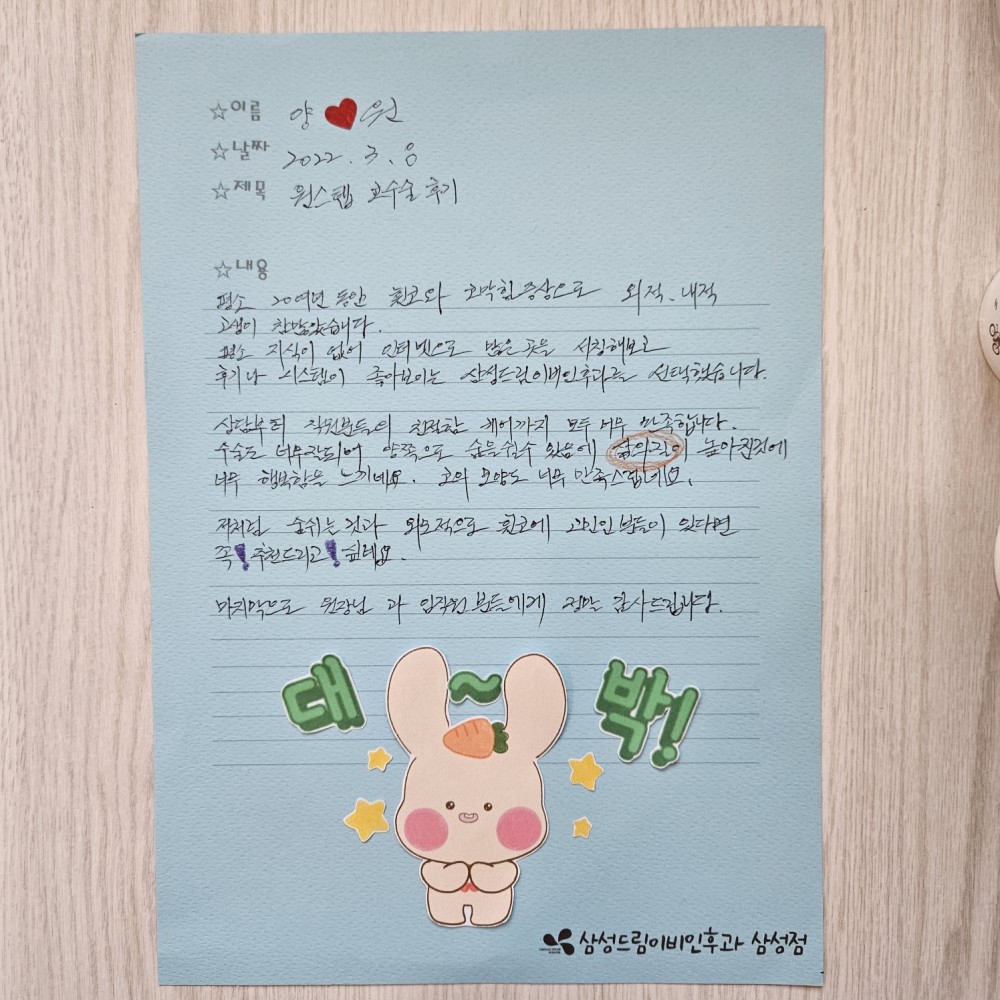 ☆이름 양 ♥ 원
☆날짜 2022. 3. 8
☆제목 원스텝 코수술 후기
☆내용
평소 20여년 동안 휜코와 코막힘 증상으로 외적, 내적
고생이 참 많았습니다.
평소 지식이 없어 인터넷으로 많은 곳을 서칭해보고
후기나 시스템이 좋아보이는 삼성드림이비인후과를 선택했습니다.
상담부터 직원분들의 친절함 케어까지 모두 너무 만족합니다.
수술도 너무 잘되어 양쪽으로 숨을 쉴 수 있음에 삶의질이 높아진것에
너무 행복함을 느끼네요. 코의 모양도 너무 만족스럽네요.
저처럼 숨쉬는 것과 외모적으로 휜코에 고민인 분들이 있다면
꼭! 추천드리고! 싶네요.
마지막으로 원장님 과 임직원 분들에게 정말 감사드립니다.
대~박!
삼성드림이비인후과 삼성점